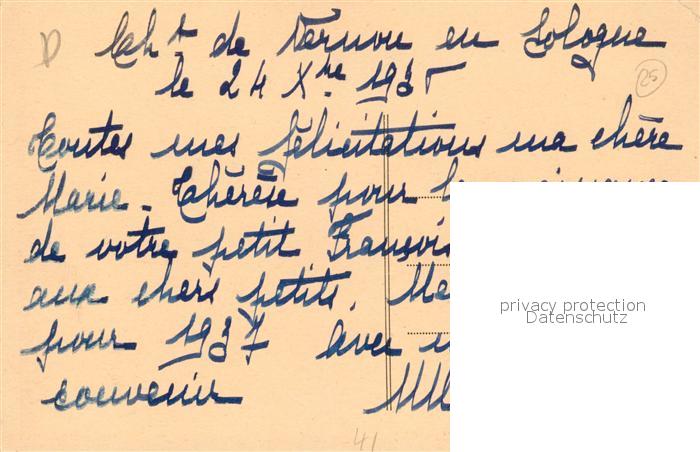 Cht de Vernou en Sologne
le 24 Xbre 193
Toutes mes félicitations ma chère
Marie-Thérèse pour la
de votre petit François
aux chers petits. Me
pour 1937 avec
souvenir
privacy protection
Datenschutz
25
41